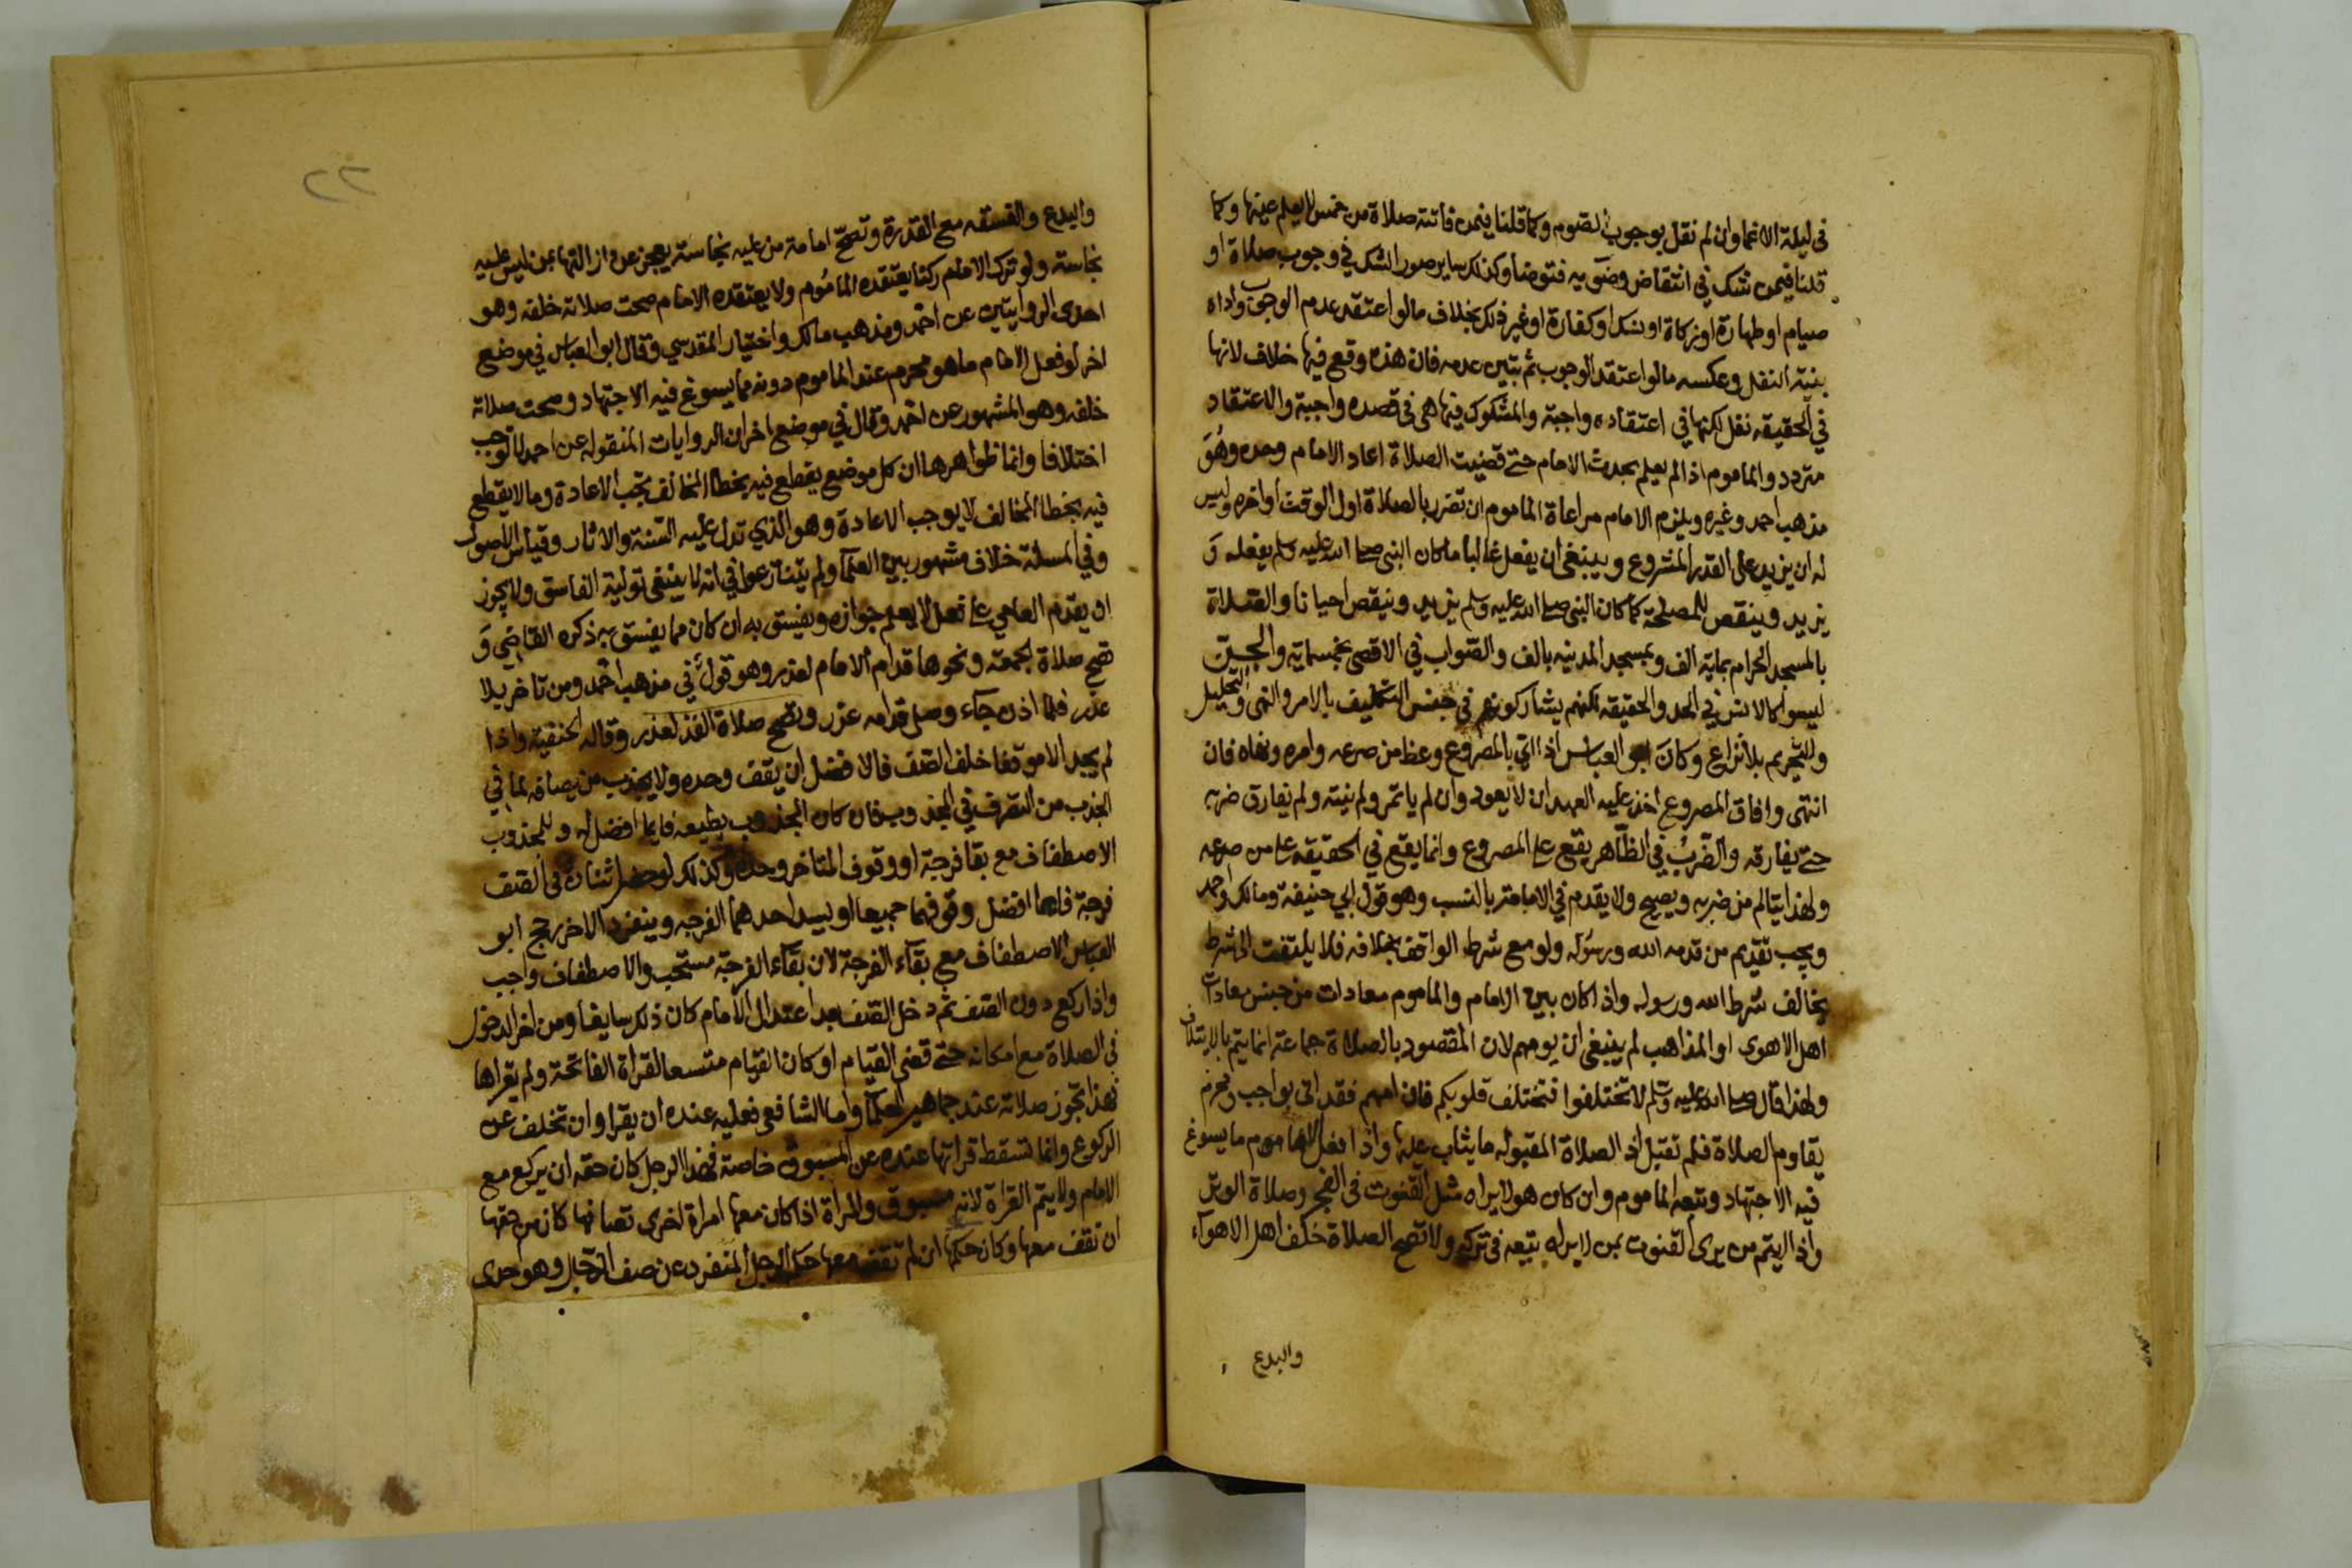 في ليلة الاغما وان لم نقل بوجوب الصوم وكما قلنا فيمن فاتته صلاة من خمس لا يعلم عينها وكما
قلنا فيمن شك في انتقاض وضوءيه فتوضا وكذلك ساير صور الشك في وجوب صلاة او
صيام او طهارة او زكاة او نسك او كفارة او غير ذلك بخلاف ما لو اعتقد عدم الوجوب واداه
بنية النفل وعكسه ما لو اعتقد الوجوب ثم تبين عدمه فان هذه وقع فيها خلاف لانها
في الحقيقة نفل لكنها في اعتقاده واجبة والمشكوك فيها هي في قصده واجبة والاعتقاد
متردد والماموم اذا لم يعلم بحدث الامام حتى قضيت الصلاة اعاد الامام وحده وهو
مذهب احمد وغيره ويلزم الامام مراعاة الماموم ان تضرر بالصلاة اول الوقت او اخره وليس
له ان يزيد على القدر المشروع وينبغي ان يفعل غالبا ما كان النبي صلى الله عليه وسلم يفعله و
يزيد وينقص للمصلحة كما كان النبي صلى الله عليه وسلم يزيد وينقص احيانا والصلاة
بالمسجد الحرام بماية الف وبمسجد المدينه بالف والصواب في الاقصى بخمسماية والجن
ليسوا كالانس في الحد والحقيقة لكنهم يشاركونهم في جنس التكليف بالامر والنهي والتحليل
والتحريم بلا نزاع وكان ابو العباس اذا اتي بالمصروع وعظ من صرعه وامره ونهاه فان
انتهى وافاق المصروع اخذ عليه العهد ان لا يعود وان لم ياتمر ولم ينته ولم يفارق ضربه
حتى يفارقه والضرب في الظاهر يقع على المصروع وانما يقع في الحقيقه على من صرعه
ولهذا يتالم من ضربه ويصيح ولا يقدم في الامامة بالنسب وهو قول ابي حنيفة ومالك واحمد
ويجب تقديم من قدمه الله ورسوله ولو مع شرط الواقف بخلافه فلا يلتفت الى شرط
يخالف شرط الله ورسوله واذا كان بين الامام والماموم معادات من جنس معادات
اهل الاهوى او المذاهب لم ينبغي ان يومهم لان المقصود بالصلاة جماعة انما يتم بالايتلاف
ولهذا قال صلى الله عليه وسلم لا تختلفوا فتختلف قلوبكم فان امهم فقد اتى بواجب ومحرم
يقاوم الصلاة فلم تقبل اذ الصلاة المقبوله ما يثاب عليها واذا فعل الامام ما يسوغ
فيه الاجتهاد وتبعه الماموم وان كان هو لا يراه مثل القنوت في الفجر وصلاة الوتر
واذا ايتم من يرى القنوت بمن لا يراه تبعه في تركه ولا تصح الصلاة خلف اهل الاهواء
والبدع
٢٢
والبدع والفسقه مع القدرة وتصح امامة من عليه نجاسة يعجز عن ازالتها بمن ليس عليه
نجاسته ولو ترك الامام ركنا يعتقده الماموم ولا يعتقده الامام صحت صلاته خلفه وهو
احدى الروايتين عن احمد ومذهب مالك واختيار المقدسي وقال ابو العباس في موضع
اخر لو فعل الامام ما هو محرم عند الماموم دونه مما يسوغ فيه الاجتهاد وصحت صلاته
خلفه وهو المشهور عن احمد وقال في موضع اخر ان الروايات المنقولة عن احمد لا توجب
اختلافا وانما ظواهرها ان كل موضع يقطع فيه بخطا المخالف تجب الاعادة وما لا يقطع
فيه بخطا المخالف لا يوجب الاعادة وهو الذي تدل عليه السنة والاثار وقياس الاصول
وفي المسلة خلاف مشهور بين العلما ولم يتنازعوا في انه لا ينبغي تولية الفاسق ولا يجوز
ان يقدم العامي على فعل لا يعلم جوازه ويفسق به ان كان مما يفسق به ذكره القاضي و
تصح صلاة الجمعه ونحوها قدام الامام لعذر وهو قول في مذهب احمد ومن تاخر بلا
عذر فلما اذن جاء وصلى قدامه عزر وتصح صلاة الفذ لعذر وقاله الحنفية واذا
لم يجد الا موقفا خلف الصف فالافضل ان يقف وحده ولا يجذب من يصافه لما في
الجذب من التصرف في المجذوب فان كان المجذوب يطيعه فايما افضل له وللمجذوب
الاصطفاف مع بقا فرجة او وقوف المتاخر وحده وكذلك لو حضر اثنان في الصف
فرجة فايما افضل وقوفهما جميعا او يسد احدهما الفرجه وينفرد الاخر رجح ابو
العباس الاصطفاف مع بقاء الفرجة لان بقاء الفرجة مستحب والاصطفاف واجب
واذا ركع دون الصف ثم دخل الصف بعد اعتدال الامام كان ذلك سايغا ومن اخر الدخول
في الصلاة مع امكانه حتى قضى القيام او كان القيام متسعا لقراة الفاتحة ولم يقراها
فهذا تجوز صلاته عند جماهير العلما واما الشافعي فعليه عنده ان يقرا وان تخلف عن
الركوع وانما تسقط قراتها عنده عن المسبوق خاصة فهذا الرجل كان حقه ان يركع مع
الامام ولا يتم القراة لانه مسبوق والمراة اذا كان معها امراة اخرى تصافها كان من حقها
ان تقف معها وكان حكمها ان لم تقف معها حكم الرجل المنفرد عن صف الرجال وهو احدى